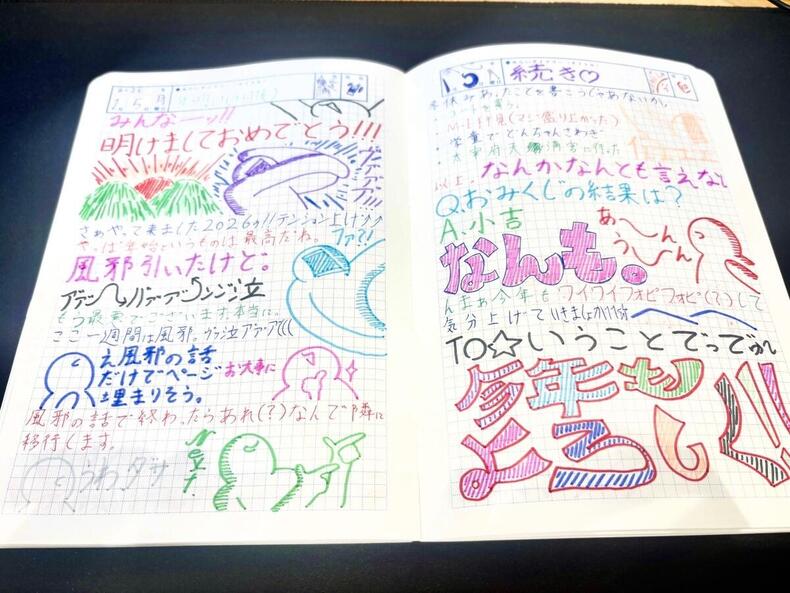 1月5日月
みんなーッ!!
明けましておめでとう!!!
さぁやって来ました2026の!!テンション上げ
やっぱ年始というものは最高だね。
ファ?!
風邪引いたけど。
もう最悪でございます。本当に。
ここ一週間は風邪。
え風邪の話
だけでページ
埋まりそう。
お大事に
風邪の話で終わったらあれ(?)なんで隣に
移行します。
うわ、ダサ
Next
続き♡
冬休みあったことを書こうじゃあないか。
M-1见
(マジ盛り上がった)
学童でどんちゃんさわぎ
太宰府天満宮に行った
以上。なんかなんとも言えない
Q.おみくじの結果は?
A.小吉
あ〜ん
う〜ん
なんも。
んまぁ今年もワイワイフォビフォビ(?)して
気分上げていきましょかい
TO☆いうことでって
今年も
よろしく!!